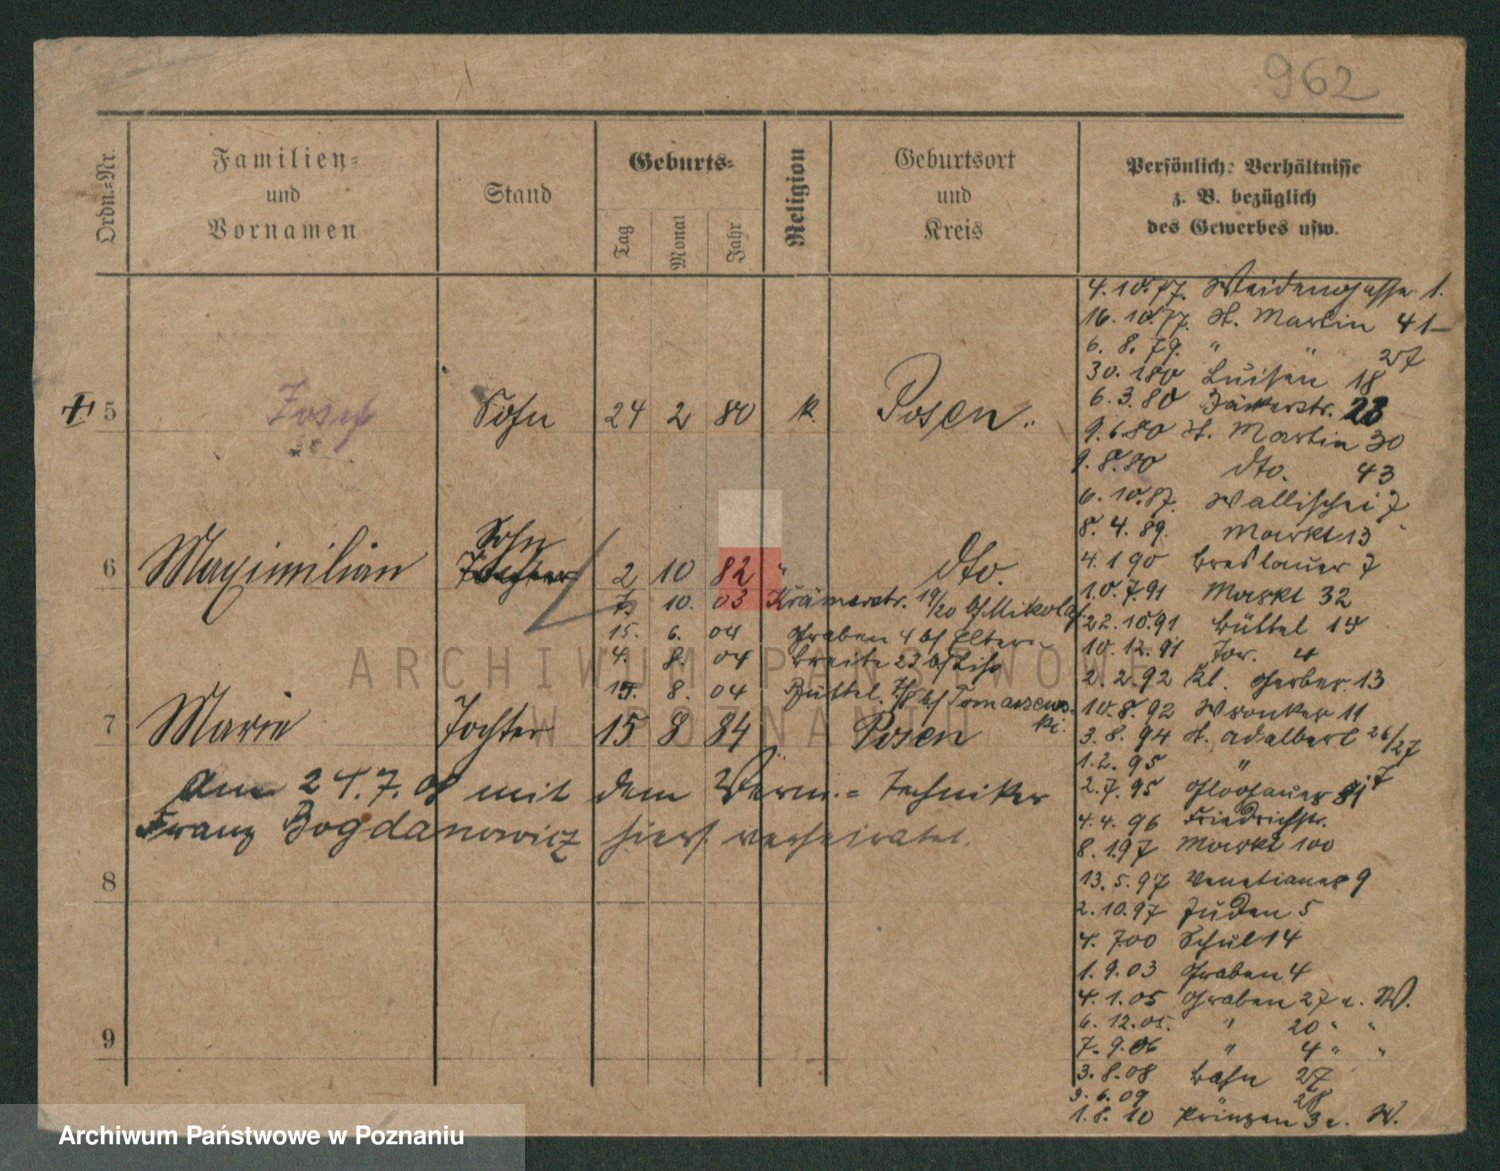 962
Ordn.-Nr.
Familien-
und
Vornamen
Stand
Geburts-
Tag
Monat
Jahr
Religion
Geburtsort
und
Kreis
Persönliche Verhältnisse
z. B. bezüglich
des Gewerbes usw.
5 Josef Sohn 24 2 80 k. Posen
6 Maximilian Tochter Sohn 2 10 82 " dto.
7. 10. 03 Krämerstr. 19/20 bf Mikolaj.
15. 6. 04 Graben 4 bf Eltern
4. 8. 04 Breite 23 bf
15. 8. 04 Büttel. bf Tomaszewski.
7 Marie Tochter 15 8 84 " Posen
Am 21.7.08 mit dem Verm.= Techniker
Franz Bogdanowicz hiers. verheiratet.
8
9
4.10.77. Weidengasse 1.
16.10.77. St. Martin 41
6. 8. 79. " " 27
30. 1 80 Luisen 18
6. 3. 80 Bäckerstr. 23
9. 6 80 St. Martin 30
9. 8. 80 dto. 43
6. 10. 87. Wallischei 7
8. 4. 89. Markt 13
4. 1 90 Breslauer 7
10. 7. 91 Markt 32
22. 10. 91 Büttel 15
10. 12. 91 Tor. 4
2. 2. 92 Kl. Gerber 13
10. 8. 92 Wronker 11
3. 8. 94 St. Adalbert 26/27
1. 2. 95 "
2. 7. 95 Glogauer
4. 4. 96 Friedrichstr.
8. 1 97 Markt 100
13. 5. 97 Venetianer 9
2. 10. 97 Juden 5
4. 7 00 Schul 14
1. 9. 03 Graben 4
4. 1. 05 Graben 27 n. W.
6. 12. 05. " 20 " "
7. 9. 06 " 4 " "
3. 8. 08 Bahn 27
3. 6. 09 28
1. 8. 10 Prinzen 3 n. W.
ARCHIWUM PAŃSTWOWE
W POZNANIU
Archiwum Państwowe w Poznaniu